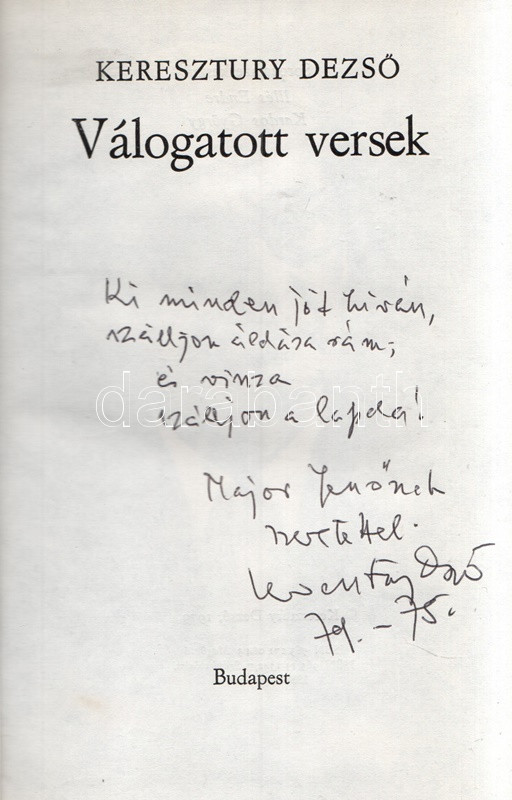 KERESZTURY DEZSŐ
Válogatott versek
Ki minden jót kíván,
szálljon áldása rám;
és vissza
szálljon a lapda!
darabanth
Major Jenőnek
szeretettel.
Keresztury Dezső
79. – 75.
Budapest